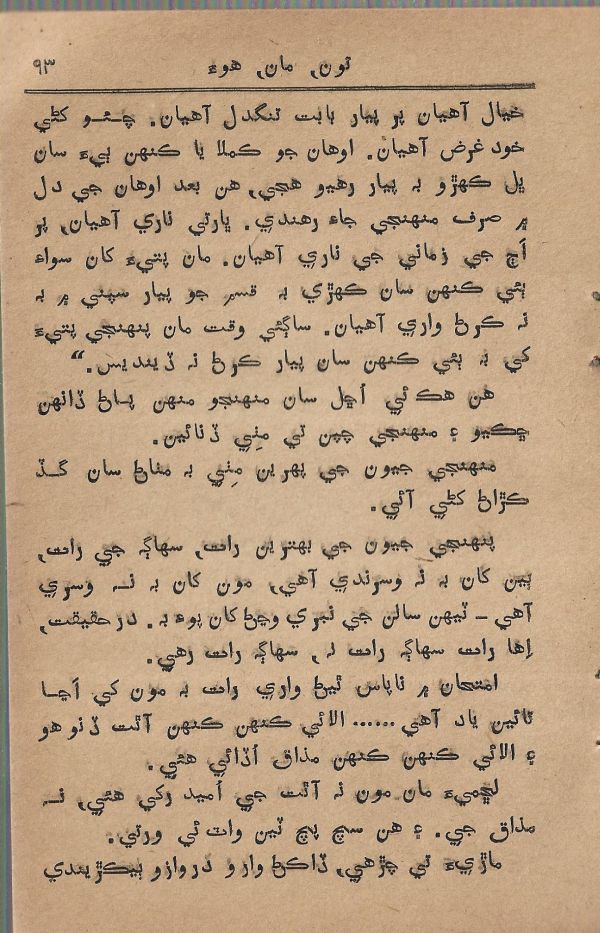 تون، مان، هوءَ ۹۳
خيال آهيان پر پيار بابت تنگدل آهيان. چئو کڻي
خود غرض آهيان. اوهان جو ڪملا يا ڪنهن ٻيءَ سان
ڀل ڪهڙو به پيار رهيو هجي، هن بعد اوهان جي دل
۾ صرف منهنجي جاءِ رهندي. ڀارتي ناري آهيان، پر
اڄ جي زماني جي ناري آهيان. مان پتيءَ کان سواءِ
ٻئي ڪنهن سان ڪهڙي به قسم جو پيار سپني ۾ به
نه ڪرڻ واري آهيان. ساڳئي وقت مان پنهنجي پتيءَ
کي به ٻئي ڪنهن سان پيار ڪرڻ نه ڏينديس.“
هن هڪ ئي اُڇل سان منهنجو منهن پاڻ ڏانهن
ڇڪيو ۽ منهنجي چپن تي مِٺي ڏنائين.
منهنجي جيون جي پهرين مِٺي به مٺاڻ سان گڏ
ڪڙاڻ کڻي آئي.
پنهنجي جيون جي بهترين رات، سهاڳ جي رات،
ٻين کان به نه وسرندي آهي، مون کان به نه وسري
آهي ـ ٽيهن سالن جي نبري وڃڻ کان پوءِ به. درحقيقت،
اِها رات سهاڳ رات نه، سهاڳ رات رهي.
امتحان ۾ ناپاس ٿيڻ واري رات به مون کي اَڃا
تائين ياد آهي...... الائي ڪنهن ڪنهن آٿت ڏنو هو
۽ الائي ڪنهن ڪنهن مذاق اُڏائي هئي.
لڇميءَ مان مون نه آٿت جي اُميد رکي هئي، نه
مذاق جي. ۽ هن سچ پچ ٽين واٽ ئي ورتي.
ماڙيءَ تي چڙهي، ڏاڪڻ وارو دروازو ٻيڪڙيندي